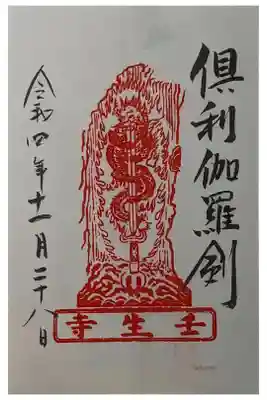 倶利伽羅剣
令和四年十一月二十八日
壬生寺